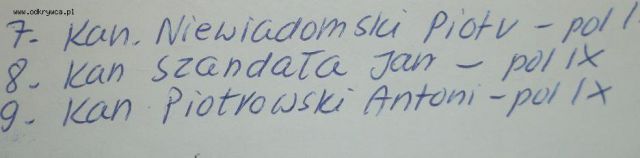 www.odkrywca.pl
7- Kan. Niewiadomski Piotr - pol I
8- Kan Szandała Jan - pol IX
9- Kan Piotrowski Antoni - pol IX